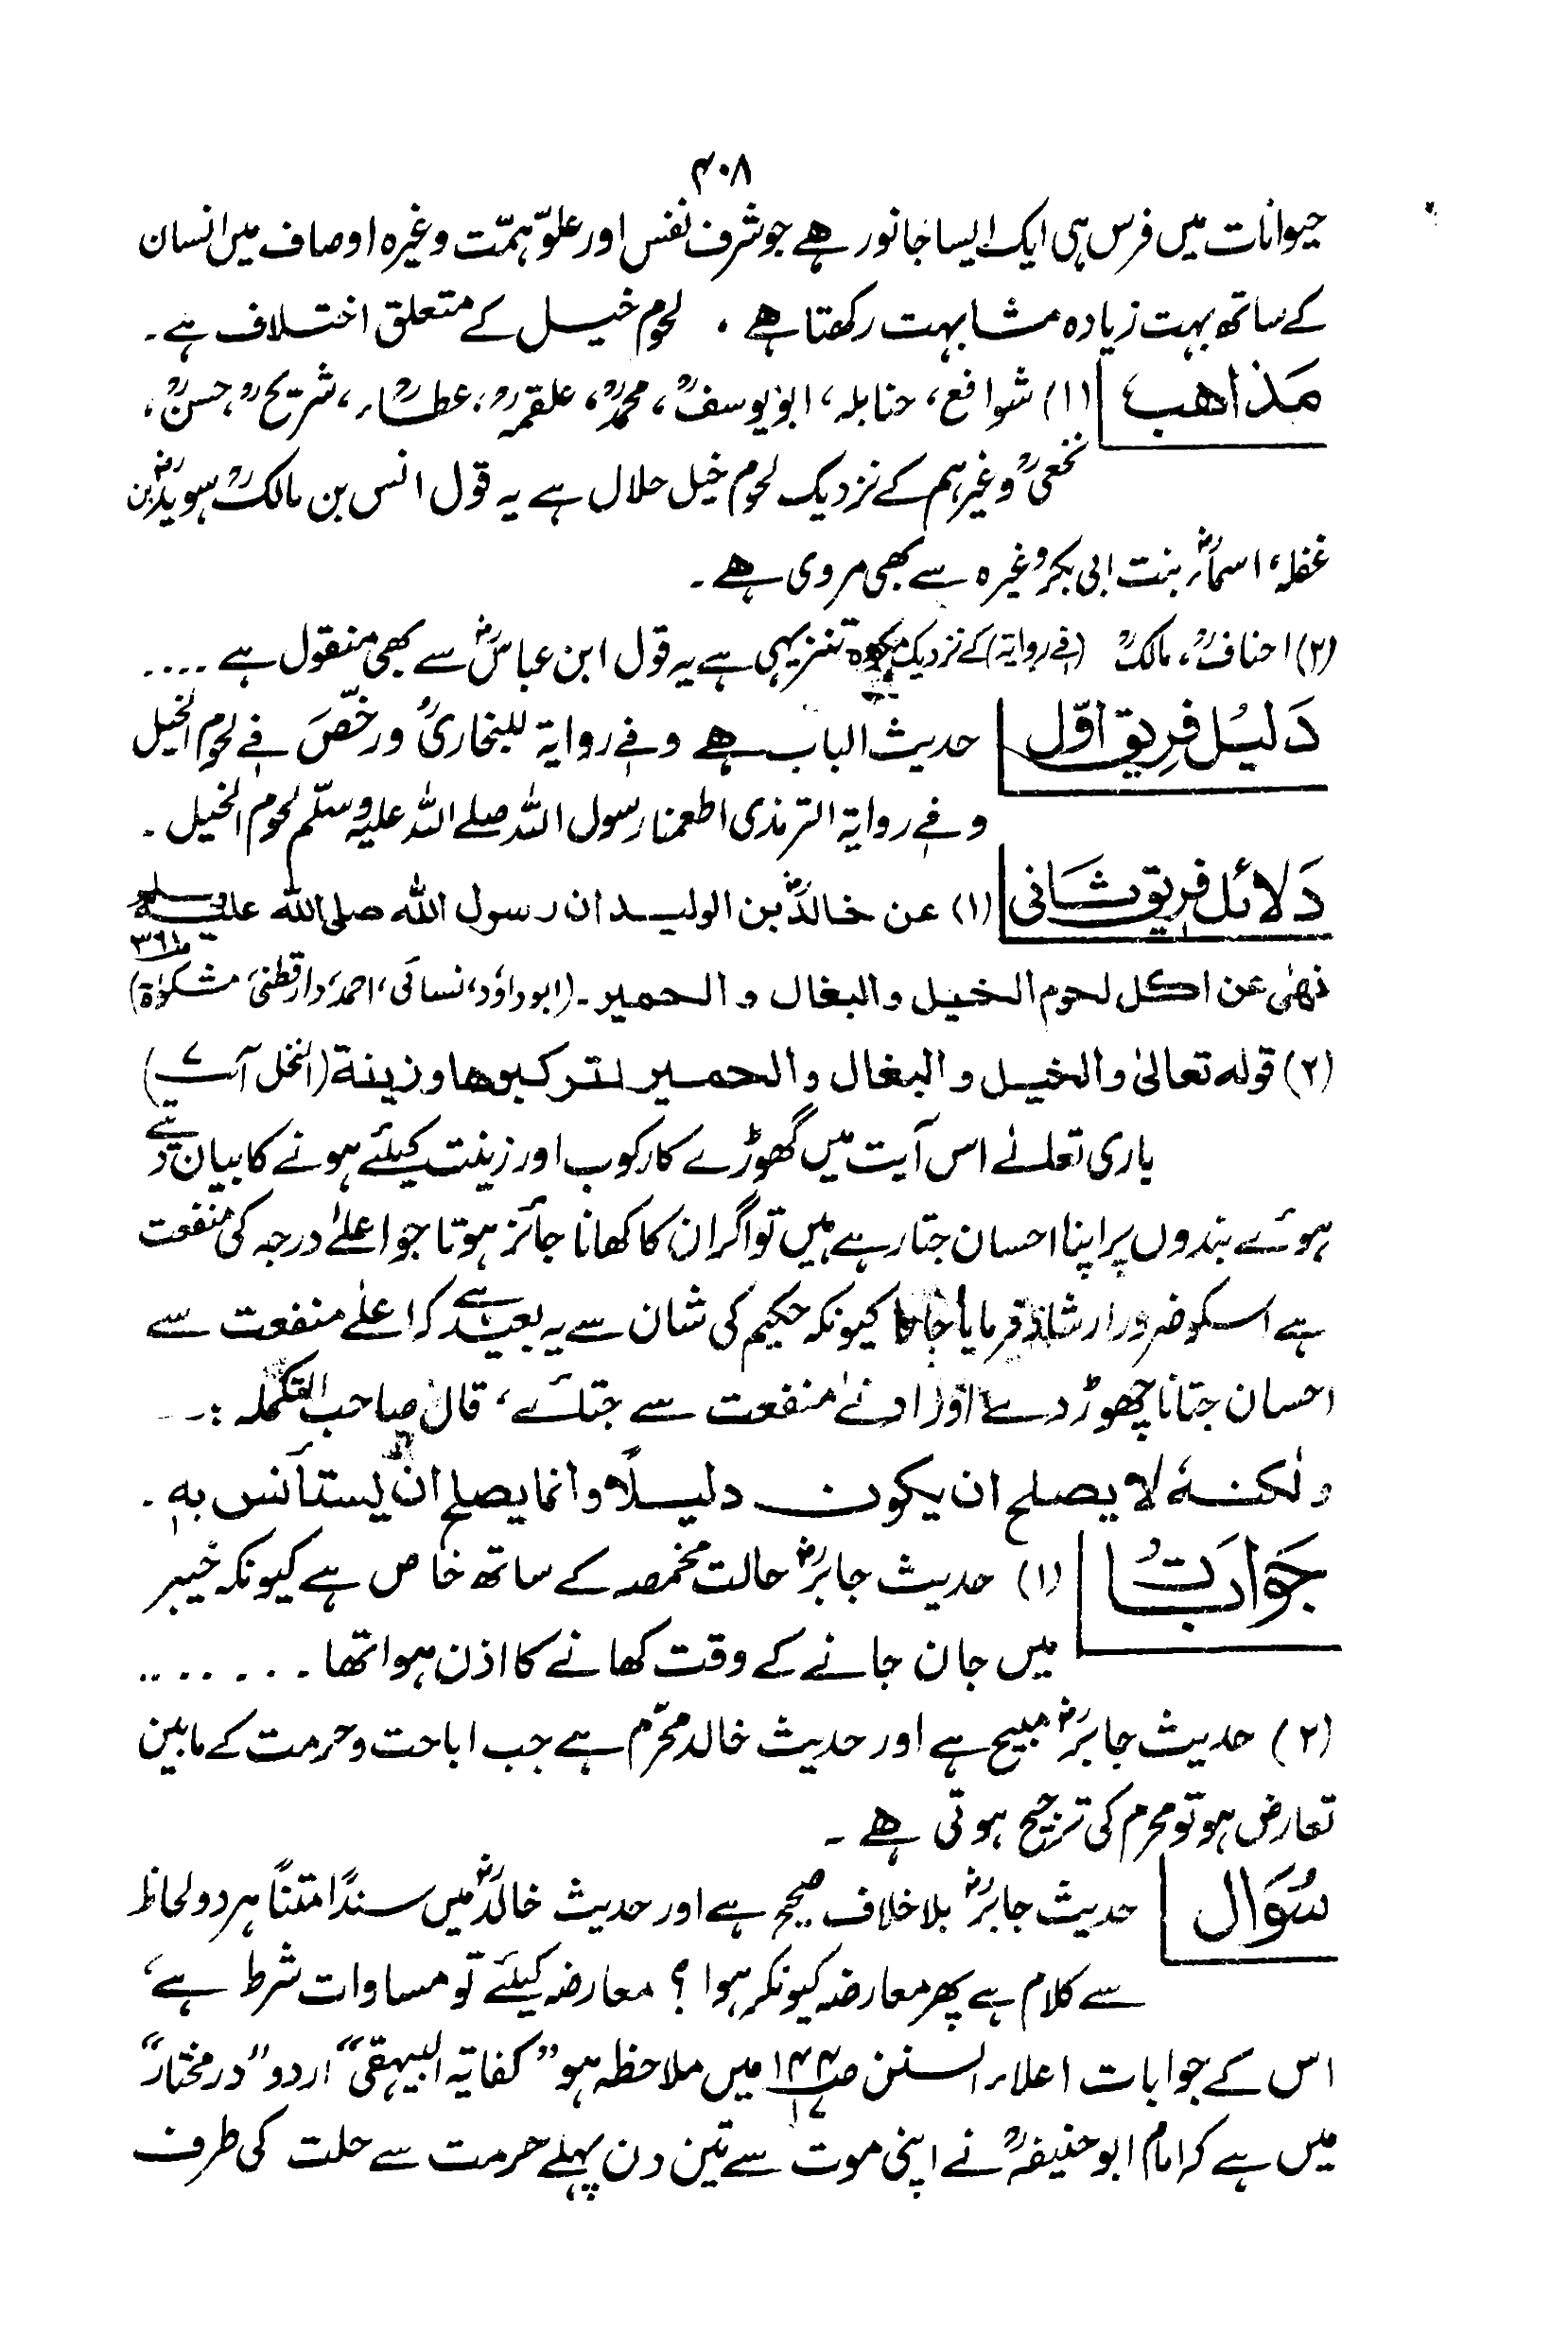 ۴۰۸
حیوانات میں فرس ہی ایک ایسا جانور ہے جو شرف نفس اور علوّ ہمّت وغیرہ اوصاف میں انسان
کے ساتھ بہت زیادہ مشابہت رکھتا ہے ۔ لحوم خیل کے متعلق اختلاف ہے ۔
مَذاهب (۱) شوافع، حنابلہ، ابو یوسفؒ، محمدؒ، علقمہؒ، عطاءؒ، شریحؒ، حسنؒ،
نخعیؒ وغیرہم کے نزدیک لحوم خیل حلال ہے یہ قول انس بن مالکؓ سویدؓ بن
غفلہ، اسماءؓ بنت ابی بکرؓ وغیرہ سے بھی مروی ہے ۔
(۲) احنافؒ، مالکؒ (فی روایۃ) کے نزدیک مکروہ تنزیہی ہے یہ قول ابن عباسؓ سے بھی منقول ہے ....
دَلیُل فرِیق اوّل حدیث الباب ہے وفی روایۃ للبخاریؒ ورخّصَ فی لحوم الخیل
وفی روایۃ الترمذی اطعمنا رسول اللہ صلے اللہ علیہ وسلّم لحوم الخیل ۔
دَلائل فریق ثانی (۱) عن خالدؓ بن الولید ان رسول الله صلی الله علیه وسلم
نھٰی عن اکل لحوم الخیل والبغال والحمیر ۔ (ابوداؤد، نسائی، احمد، دارقطنی، مشکوٰۃ ص۳۶۱)
(۲) قوله تعالیٰ والخیل والبغال والحمیر لترکبوها وزینة (النحل آیت ۸)
باری تعالےٰ اس آیت میں گھوڑے کا رکوب اور زینت کیلئے ہونے کا بیان دیتے
ہوئے بندوں پر اپنا احسان جتا رہے ہیں تو اگر ان کا کھانا جائز ہوتا جو اعلےٰ درجہ کی منفعت
ہے اسکو ضرور ارشاد فرمایا جاتا کیونکہ حکیم کی شان سے یہ بعید ہے کہ اعلےٰ منفعت سے
احسان جتانا چھوڑ دے اور ادنےٰ منفعت سے جتائے، قال صاحب التکملہ :۔
ولٰکنہٗ لا یصلح ان یکون دلیلاً وانما یصلح ان یستأنس بہٖ ۔
جَوابَات (۱) حدیث جابرؓ حالت مخمصہ کے ساتھ خاص ہے کیونکہ خیبر
میں جان جانے کے وقت کھانے کا اذن ہوا تھا ........
(۲) حدیث جابرؓ مبیح ہے اور حدیث خالد محرّم ہے جب اباحت وحرمت کے مابین
تعارض ہو تو محرم کی ترجیح ہوتی ہے ۔
سُوَال حدیث جابرؓ بلاخلاف صحیح ہے اور حدیث خالدؓ میں سنداً متناً ہر دو لحاظ
سے کلام ہے پھر معارضہ کیونکر ہوا ؟ معارضہ کیلئے تو مساوات شرط ہے،
اس کے جوابات اعلاء السنن ص۱۴۴ ۱۷ میں ملاحظہ ہو ”کفایۃ البیہقی“ اردو ”درمختار“
میں ہے کہ امام ابوحنیفہؒ نے اپنی موت سے تین دن پہلے حرمت سے حلت کی طرف